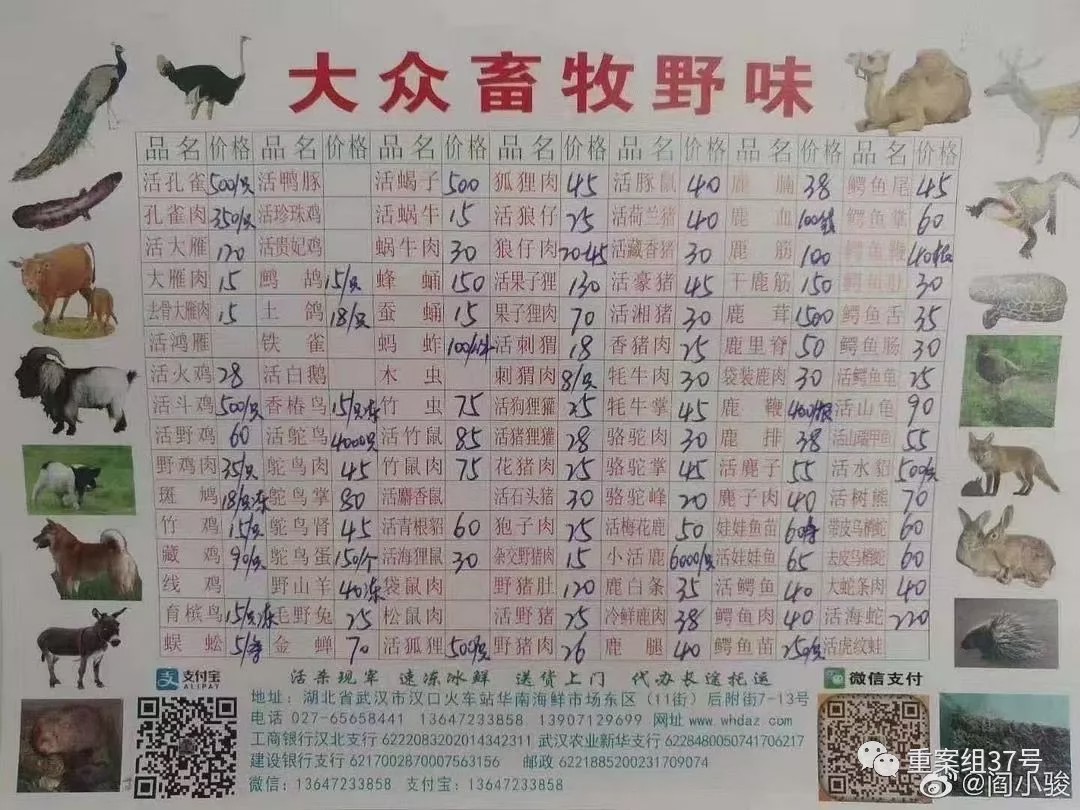 大众畜牧野味
品名 价格 品名 价格 品名 价格 品名 价格 品名 价格 品名 价格 品名 价格
活孔雀 500/只 活鸭豚 活蝎子 500 狐狸肉 45 活豚鼠 40 鹿腩 38 鳄鱼尾 45
孔雀肉 350/只 活珍珠鸡 活蜗牛 15 活狼仔 25 活荷兰猪 40 鹿血 鳄鱼掌 60
活大雁 120 活贵妃鸡 蜗牛肉 30 狼仔肉 20-45 活藏香猪 30 鹿筋 100 鳄鱼鞭
大雁肉 15 鹧鸪 15/只 蜂蛹 150 活果子狸 130 活豪猪 45 干鹿筋 150 鳄鱼肚 30
去骨大雁肉 15 土鸽 18/只 蚕蛹 15 果子狸肉 70 活湘猪 30 鹿茸 1500 鳄鱼舌 35
活鸿雁 铁雀 蚂蚱 活刺猬 18 香猪肉 25 鹿里脊 50 鳄鱼肠 30
活火鸡 28 活白鹅 木虫 刺猬肉 8/只 牦牛肉 30 袋装鹿肉 30 活鳄鱼龟 25
活斗鸡 500/只 香椿鸟 15/只冻 竹虫 75 活狗狸獾 25 牦牛掌 45 鹿鞭 活山龟 90
活野鸡 60 活鸵鸟 4000只 活竹鼠 85 活猪狸獾 28 骆驼肉 30 鹿排 38 活山瑞甲鱼 55
野鸡肉 35/只 鸵鸟肉 45 竹鼠肉 75 花猪肉 25 骆驼掌 45 活麂子 55 活水貂 500/只
斑鸠 18/只冻 鸵鸟掌 80 活麝香鼠 活石头猪 30 骆驼峰 20 麂子肉 40 活树熊 70
竹鸡 15/只 鸵鸟肾 45 活青根貂 60 狍子肉 25 活梅花鹿 50 娃娃鱼苗 带皮乌梢蛇 60
藏鸡 90/只 鸵鸟蛋 150/个 活海狸鼠 30 杂交野猪肉 15 小活鹿 6000/只 活娃娃鱼 65 去皮乌梢蛇 60
线鸡 野山羊 40冻 袋鼠肉 野猪肚 120 鹿白条 35 活鳄鱼 40 大蛇条肉 40
育槟鸟 15/只冻 毛野兔 25 松鼠肉 活野猪 25 冷鲜鹿肉 38 鳄鱼肉 40 活海蛇 220
蜈蚣 金蝉 70 活狐狸 500只 野猪肉 26 鹿腿 40 鳄鱼苗 250/只 活虎纹蛙
支付宝
ALIPAY
活杀现宰 速冻冰鲜 送货上门 代办长途托运
微信支付
地址:湖北省武汉市汉口火车站华南海鲜市场东区(11街)后附街7-13号
电话 027-65658441 13647233858 13907129699 网址 www.whdaz.com
工商银行汉北支行 6222083202014342311 武汉农业新华支行 6228480050741706217
建设银行支行 6217002870007563156 邮政 6221885200231709074
微信:13647233858 支付宝:13647233858
重案组37号
@阎小骏